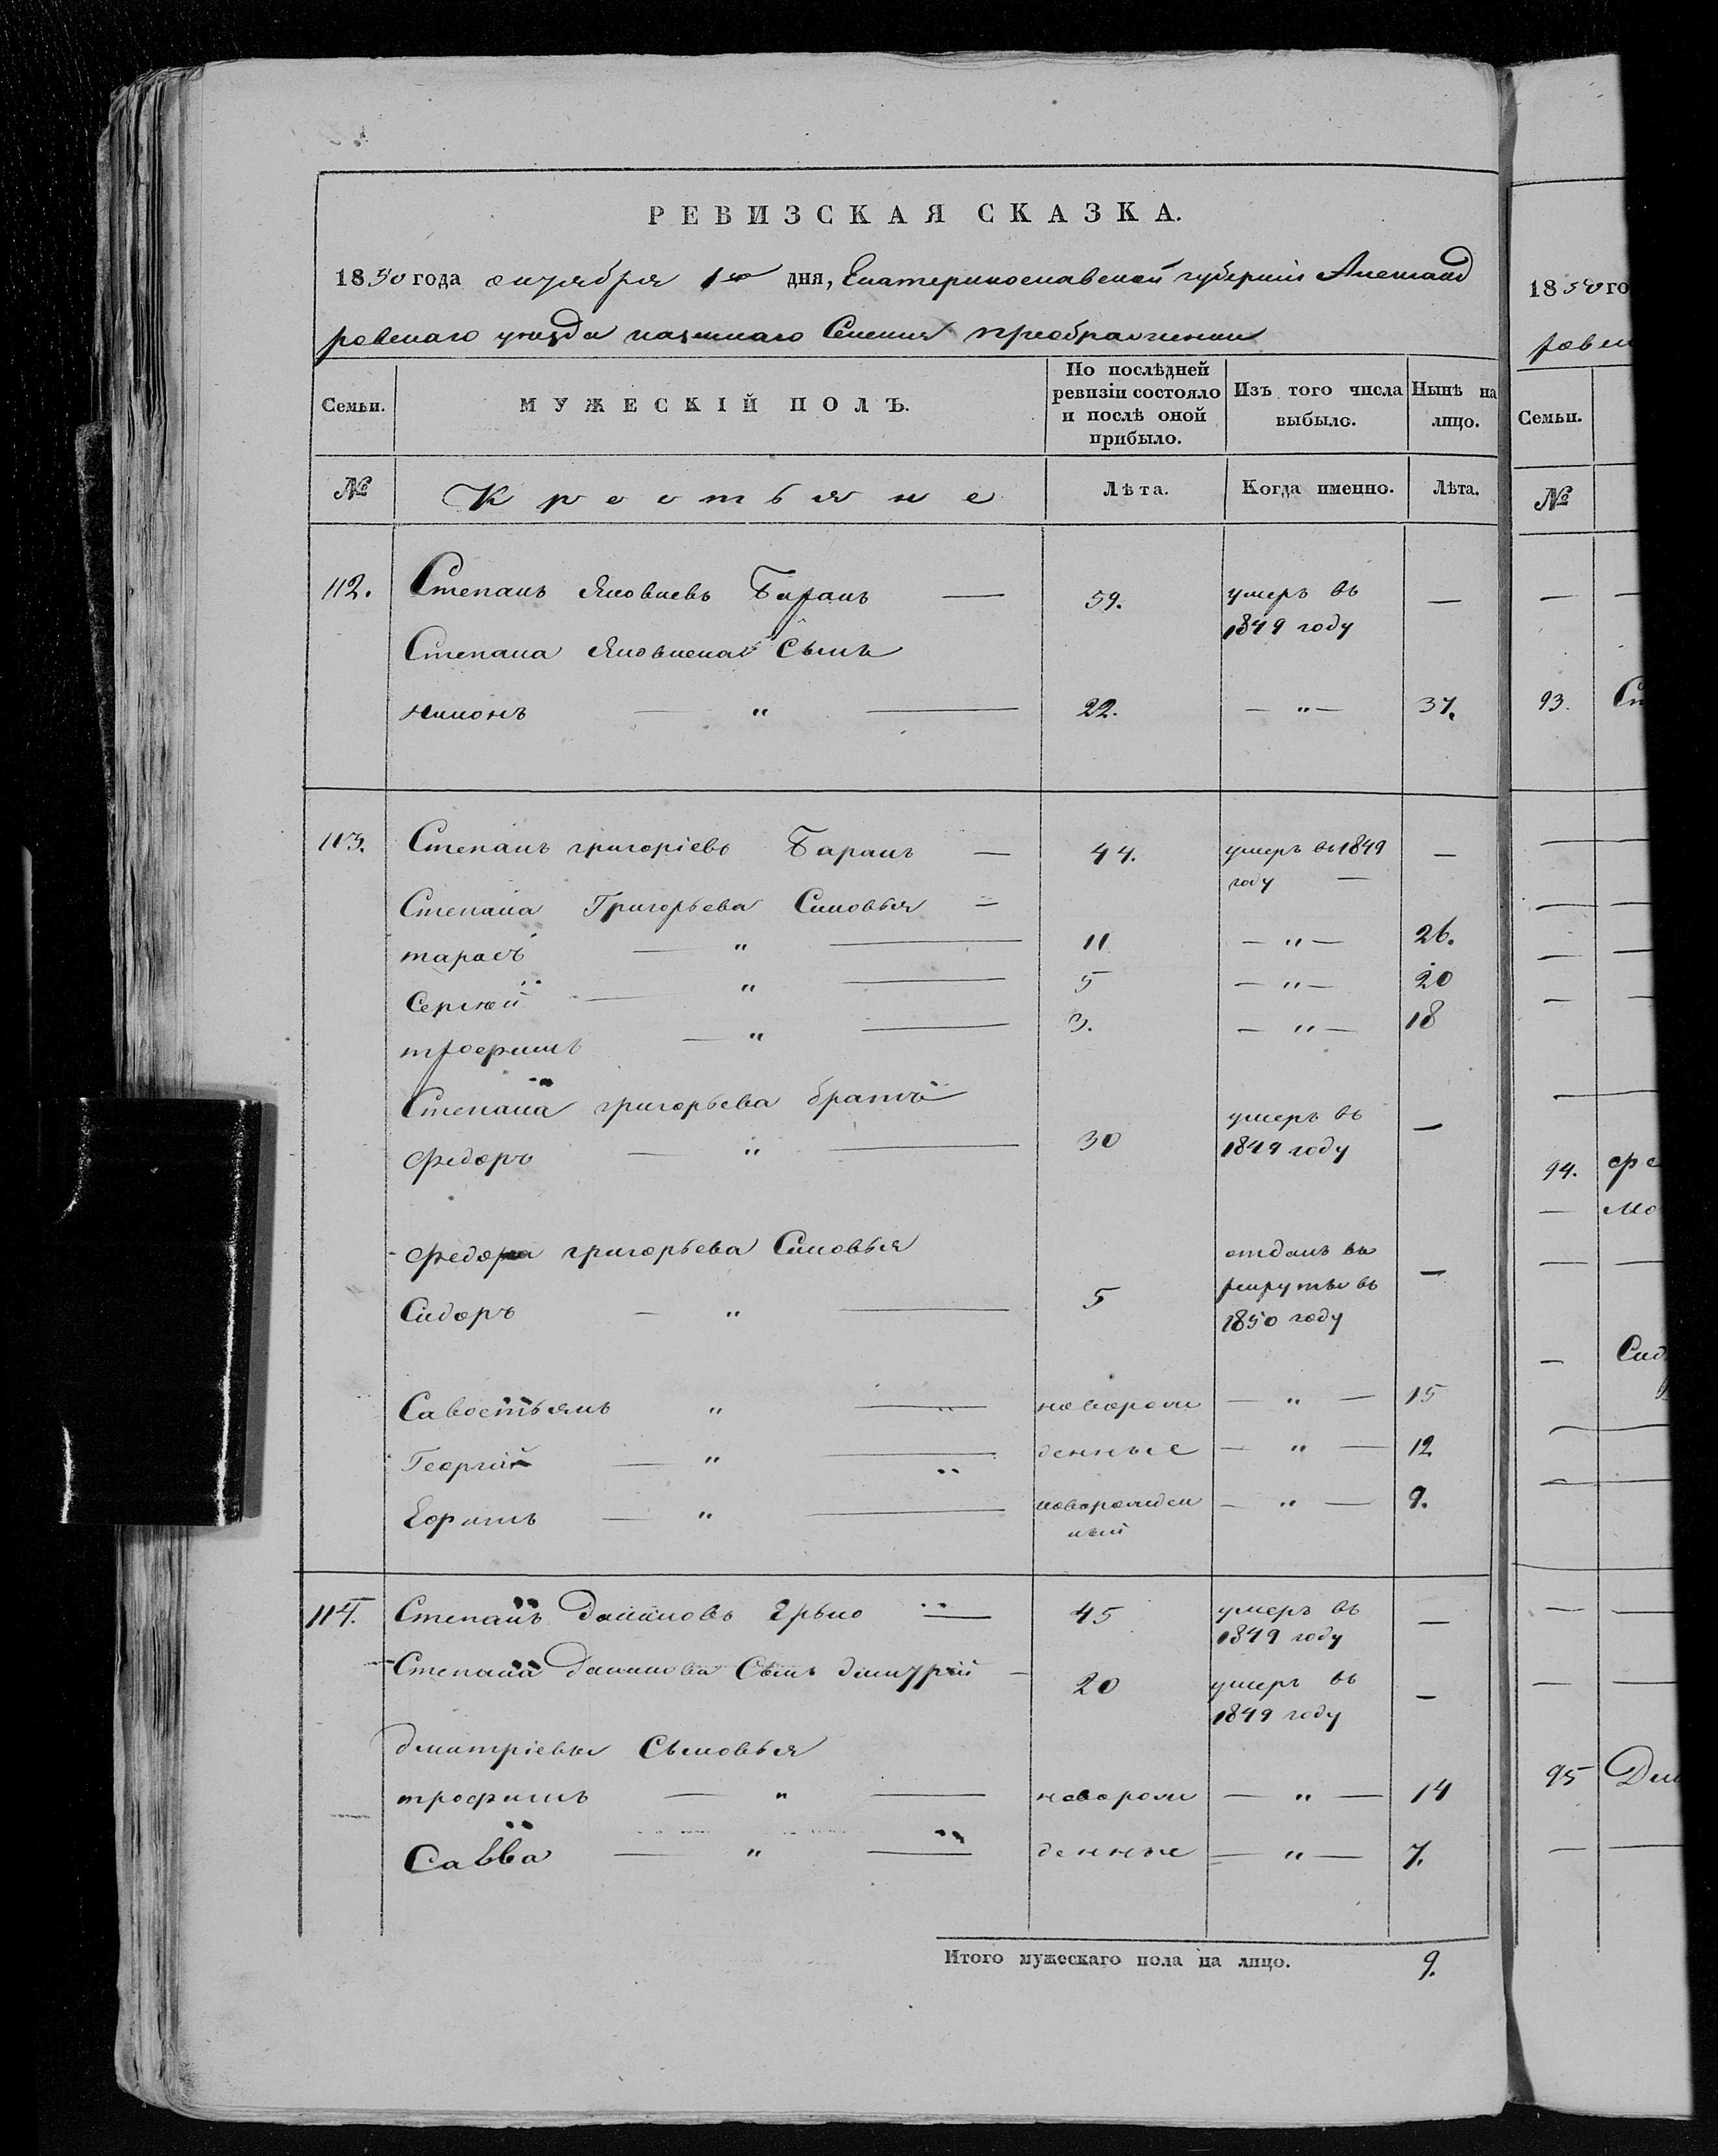 РЕВИЗСКАЯ СКАЗКА.
1850 года октября 1го дня, Екатеринославской губернии Александ
ровскаго уезда казеннаго Селения преображенки
Семьи. МУЖЕСКІЙ ПОЛЪ. По послѣдней ревизіи состояло и послѣ оной прибыло. Изъ того числа выбыло. Нынѣ на лицо.
№ Крестьяне Лѣта. Когда именно. Лѣта.
112. Степанъ Яковлевъ Баранъ — 59. умеръ въ —
1849 году
Степана Яковлева Сынъ
— " — 22. — " — 37.
113. Степанъ григоріевъ Баранъ — 44. умеръ въ 1849 —
году —
Степана Григорьева Синовья —
тарасъ — " — 11 — " — 26.
Сергѣй — " — 5 — " — 20
трофимъ — " — 3. — " — 18
Степана григорьева братъ
федоръ — " — 30 умеръ въ —
1849 году
федора григорьева Синовья
Сидоръ — " — 5 отданъ въ —
рекруты въ
1850 году
Савостьянъ " — новорож — " — 15
Георгий — " — денные — " — 12
Ефимъ — " — новорожден — " — 9.
ный
114. Степанъ Даниловъ — 45 умеръ въ —
1849 году
Степана Данилова Сынъ дмитрий — 20 умеръ въ —
1849 году
дмитріевы Сыновья
трофимъ — " — новорож — " — 14
Савва — " — денные — " — 7.
Итого мужескаго пола на лицо. 9.
1850 го
Семьи.
№
93.
94.
95